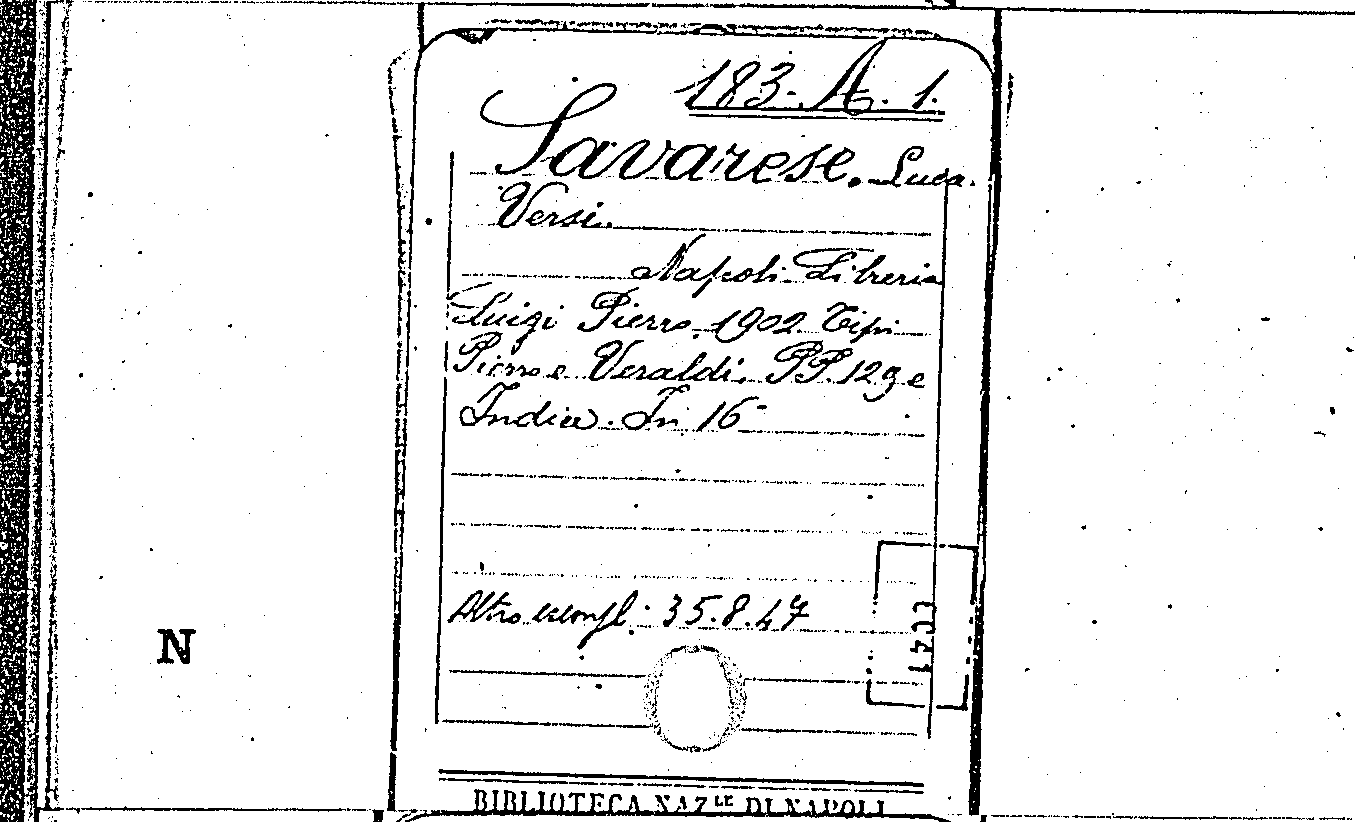 183-A. 1.
Savarese. Luca.
Versi.
Napoli Libreria
Luigi Pierro, 1902. Tipi
Pierro e Veraldi. PP. 129 e
Indice. In 16°
Altro esempl. 35.8.47
N
BIBLIOTECA NAZLE DI NAPOLI